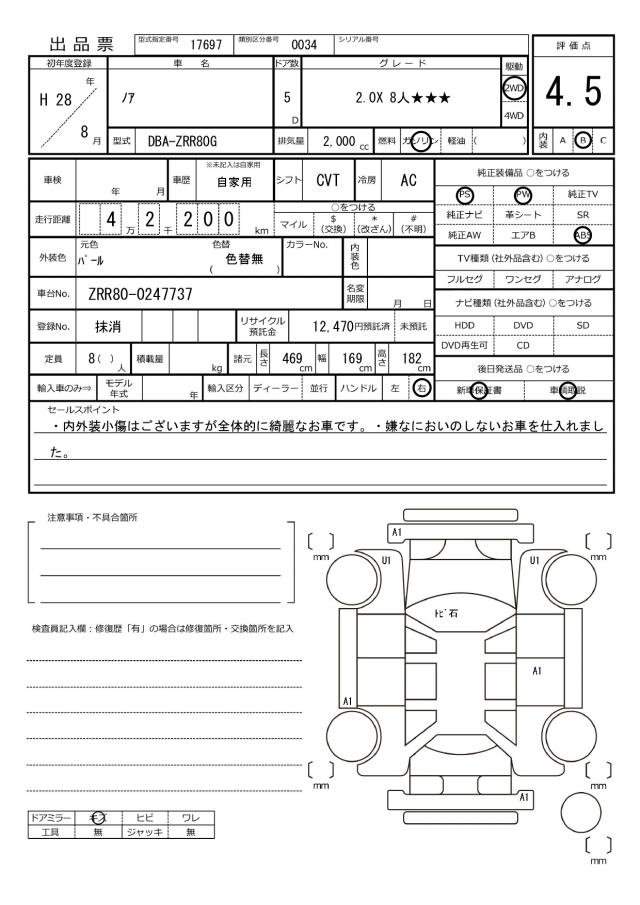 出品票 型式指定番号 17697 類別区分番号 0034 シリアル番号
評価点
4.5
内装 A B C
初年度登録 車名 ドア数 グレード 駆動
H 28 年 8 月 ノア 5 D 2.0X 8人★★★ 2WD 4WD
型式 DBA-ZRR80G 排気量 2,000 cc 燃料 ガソリン 軽油 ( )
車検 年 月 車歴 ※未記入は自家用 自家用 シフト CVT 冷房 AC
走行距離 4 万 2 千 2 0 0 km ○をつける
マイル $ (交換) * (改ざん) # (不明)
外装色 元色 パール 色替 ( 色替無 ) カラーNo. 内装色
車台No. ZRR80-0247737 名変期限 月 日
登録No. 抹消 リサイクル預託金 12,470円預託済 未預託
定員 8( )人 積載量 kg 諸元 長さ 469 cm 幅 169 cm 高さ 182 cm
輸入車のみ⇒ モデル年式 年 輸入区分 ディーラー 並行 ハンドル 左 右
純正装備品 ○をつける
PS PW 純正TV
純正ナビ 革シート SR
純正AW エアB ABS
TV種類(社外品含む)○をつける
フルセグ ワンセグ アナログ
ナビ種類(社外品含む)○をつける
HDD DVD SD
DVD再生可 CD
後日発送品 ○をつける
新車保証書 車輌取説
セールスポイント
・内外装小傷はございますが全体的に綺麗なお車です。・嫌なにおいのしないお車を仕入れまし
た。
注意事項・不具合箇所
検査員記入欄：修復歴「有」の場合は修復箇所・交換箇所を記入
A1
mm mm
U1 U1
トビ石
A1
A1
mm mm
A1
mm
ドアミラー キズ ヒビ ワレ
工具 無 ジャッキ 無